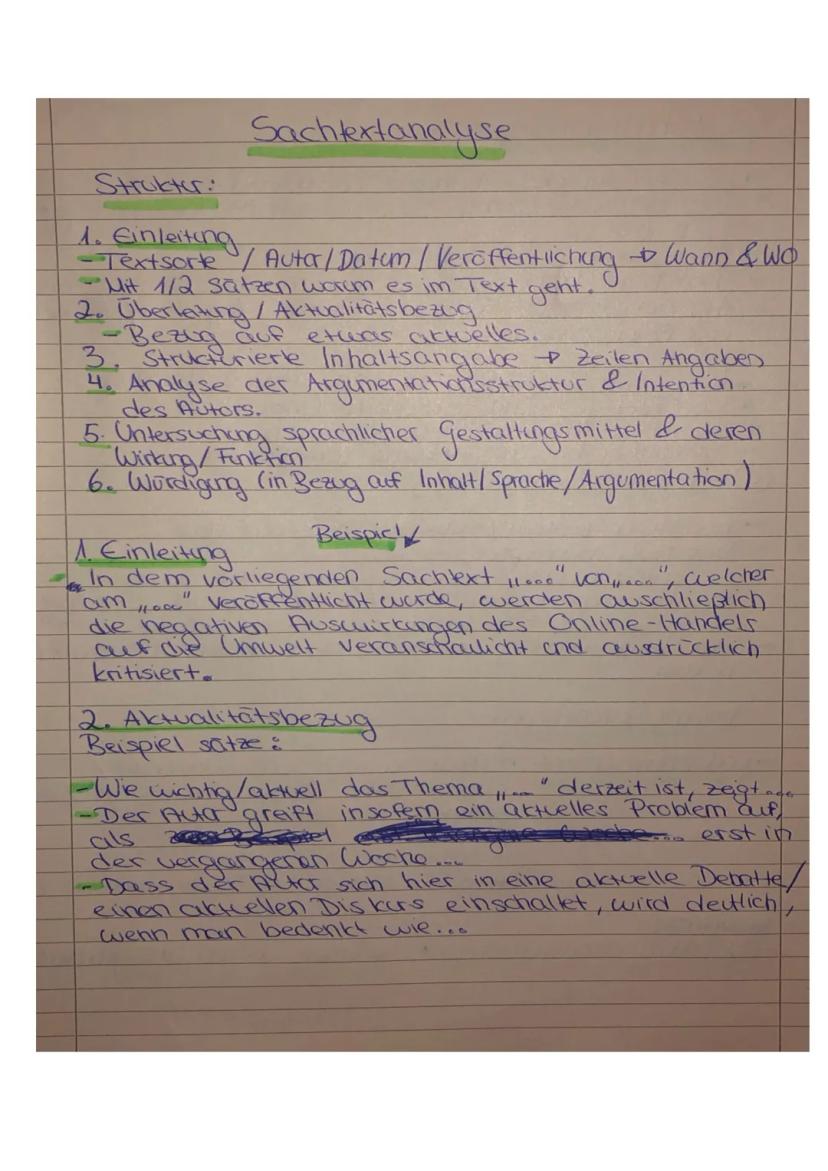 Sachtextanalyse
Struktur:
1. Einleitung
- Textsorte / Autor/Datum/Veröffentlichung → Wann & Wo
- Mit 1/2 sätzen worum es im Text geht.
2. Überleitung / Aktualitätsbezug
- Bezug auf etwas aktuelles.
3. Strukturierte Inhaltsangabe → Zeilen Angaben
4. Analyse der Argumentationsstruktur & Intention
des Autors.
5. Untersuchung sprachlicher Gestaltungsmittel & deren
Wirkung/Funktion
6. Würdigung (in Bezug auf Inhalt/Sprache/Argumentation)
Beispiel ↙
1. Einleitung
In dem vorliegenden Sachtext „..." von „...", welcher
am „..." veröffentlicht wurde, werden auschließlich
die negativen Auswirkungen des Online-Handels
auf die Umwelt veranschaulicht und ausdrücklich
kritisiert.
2. Aktualitätsbezug
Beispiel sätze:
- Wie wichtig/aktuell das Thema „..." derzeit ist, zeigt...
- Der Autor greift insofern ein aktuelles Problem auf,
als ... erst in
der vergangenen Woche...
- Dass der Autor sich hier in eine aktuelle Debatte/
einen aktuellen Diskurs einschaltet, wird deutlich,
wenn man bedenkt wie...